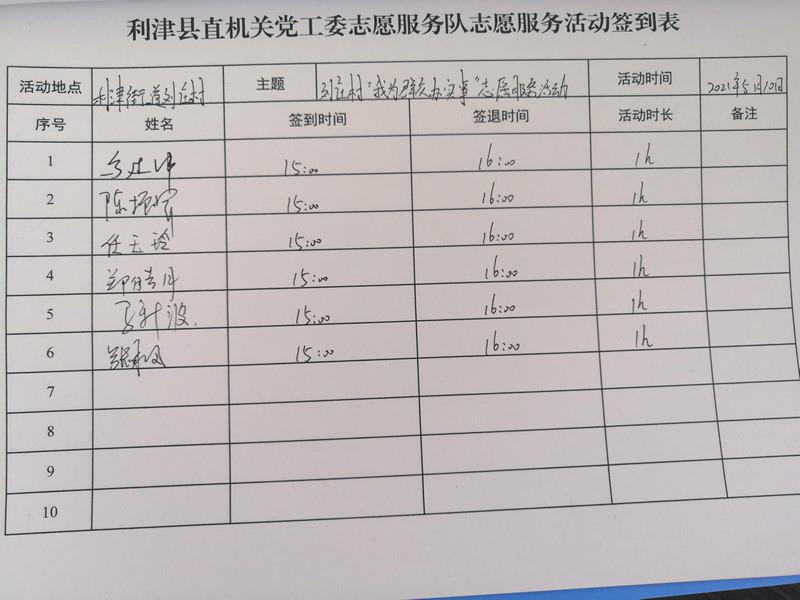 利津县直机关党工委志愿服务队志愿服务活动签到表
活动地点 利津街道刘庄村 主题 刘庄村“我为群众办实事”志愿服务活动 活动时间 2021年5月10日
序号 姓名 签到时间 签退时间 活动时长 备注
1 15:00 16:00 1h
2 陈 15:00 16:00 1h
3 任玉玲 15:00 16:00 1h
4 15:00 16:00 1h
5 波 15:00 16:00 1h
6 15:00 16:00 1h
7
8
9
10